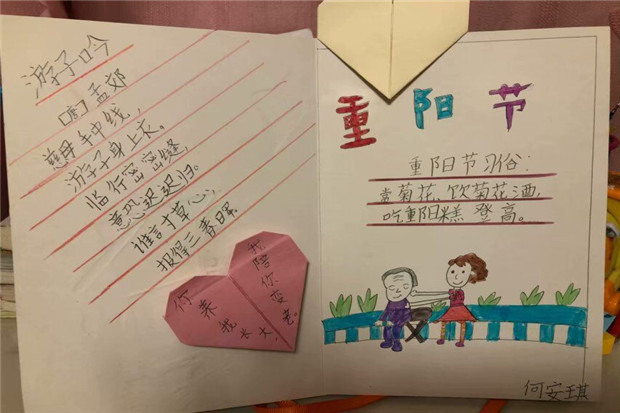 游子吟
[唐]孟郊
慈母手中线,
游子身上衣。
临行密密缝,
意恐迟迟归。
谁言寸草心,
报得三春晖。
你养我长大,
我陪你变老。
重阳节
重阳节习俗:
赏菊花、饮菊花酒,
吃重阳糕、登高。
何安琪